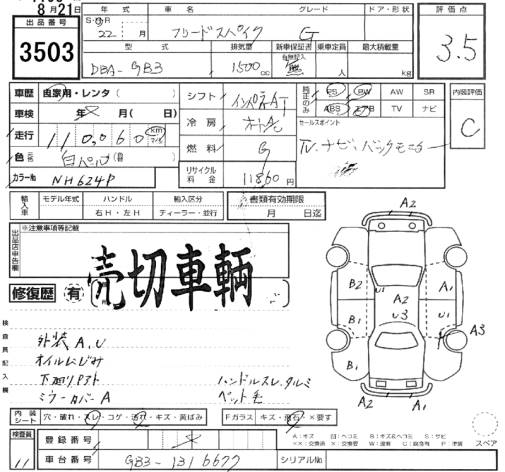 8月21日
出品番号
3503
年式 車名 グレード ドア・形状
S・H・R
22年 月 フリードスパイク G
型式 排気量 新車保証書 乗車定員 最大積載量
DBA-GB3 1500cc 有無記入 無 人 kg
評価点
3.5
車歴 自家用・レンタ( )
車検 年 月( 日)
走行 110,060 km マイル
色 元色 白パール
カラーNo NH624P
シフト インパネAT
冷房 オートAC
燃料 G
リサイクル料金 11860円
純正のみ PS PW AW SR
ABS エアB TV ナビ
セールスポイント
TV.ナビ.バックモニター
内装評価
C
輸入車 モデル年式 ハンドル 輸入区分
右H・左H ディーラー・並行
書類有効期限
月 日迄
出品店申告欄
※注意事項等記載
修復歴 有 売切車輌
検査員記入欄
外装A,U
オイルにじみ
下廻りサビ
ミラーカバーA
ハンドルスレ,タルミ
ペット毛
A2
B2 U1 A2 A1
U1 U3 A3
B1 A1
A2 A1
内装シート 穴・破れ・スレ・コゲ・汚れ・キズ・黄ばみ
Fガラス キズ・飛石・×要す
A:キズ U:ヘコミ B:キズ&ヘコミ S:サビ
スペア
検査員
11
登録番号
車台番号 GB3-1316677
シリアルNo